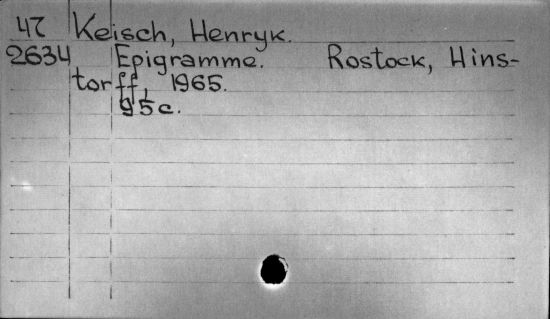 47 Keisch, Henryk.
2634 Epigramme. Rostock, Hins-
torff, 1965.
95c.